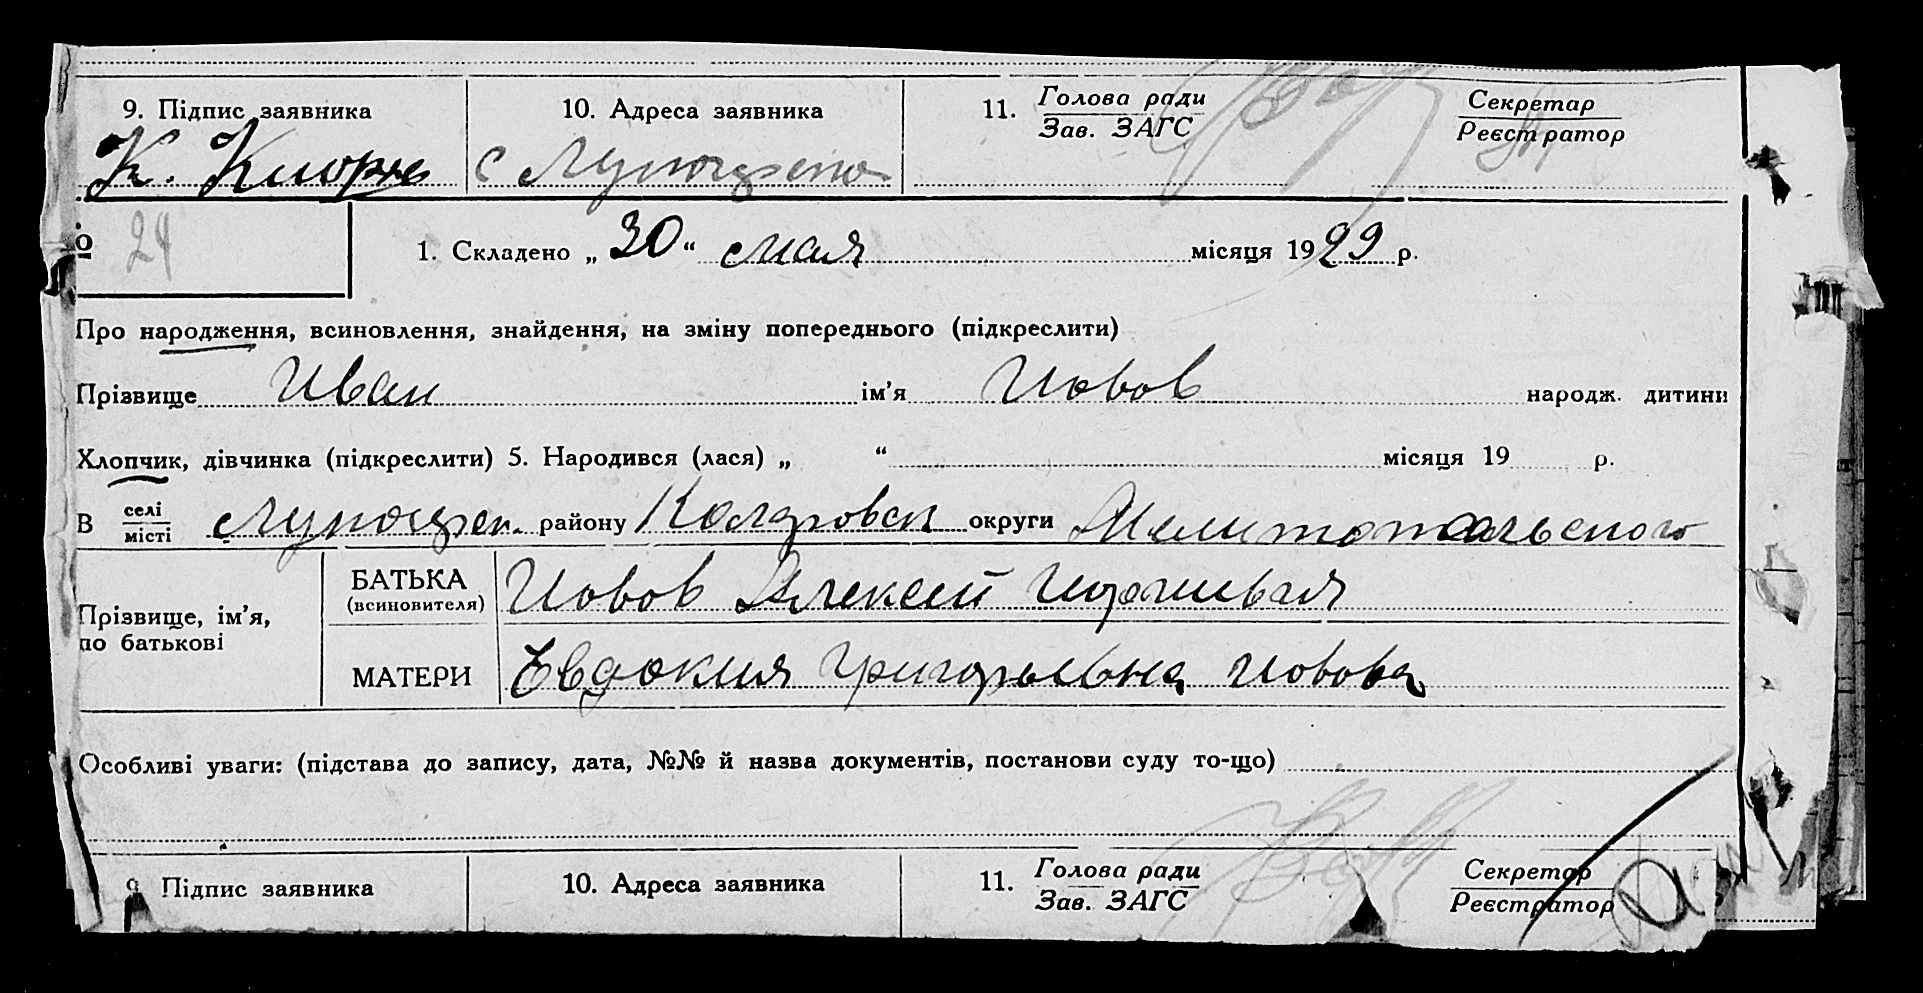 9. Підпис заявника 10. Адреса заявника 11. Голова ради Секретар
Зав. ЗАГС Реєстратор
К. с
24 1. Складено „ 30 “ мая місяця 1929 р.
Про народження, всиновлення, знайдення, на зміну попереднього (підкреслити)
Прізвище Иван ім’я Иовов народж. дитини
Хлопчик, дівчинка (підкреслити) 5. Народився (лася) „ “ місяця 19 р.
В селі
місті району округи Мелитопольского
Прізвище, ім’я,
по батькові
БАТЬКА
(всиновителя) Иовов Алексей
МАТЕРИ Евдокия Григорьевна Иовова
Особливі уваги: (підстава до запису, дата, №№ й назва документів, постанови суду то-що)
9 Підпис заявника 10. Адреса заявника 11. Голова ради Секретар
Зав. ЗАГС Реєстратор